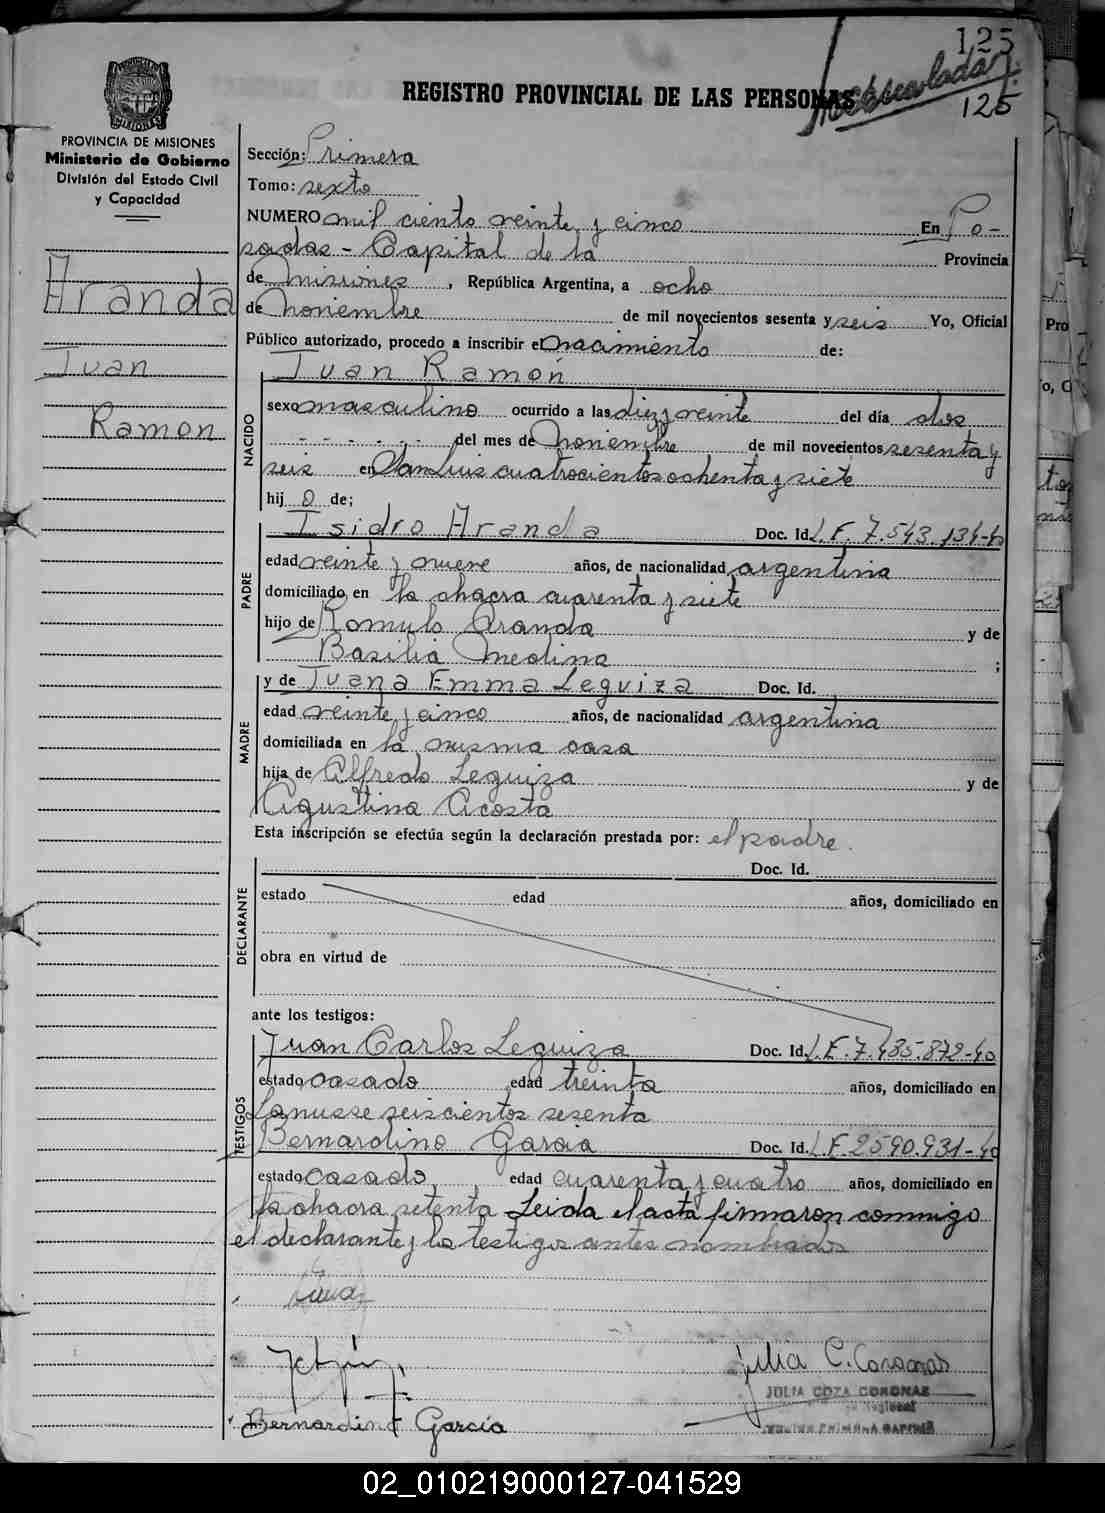 125
Matriculado
125
REGISTRO PROVINCIAL DE LAS PERSONAS
PROVINCIA DE MISIONES
Ministerio de Gobierno
División del Estado Civil
y Capacidad
Aranda
Juan
Ramon
Sección: Primera
Tomo: sexto
NUMERO mil ciento veinte y cinco En Po-
sadas - Capital de la Provincia
de Misiones, República Argentina, a ocho
de Noviembre de mil novecientos sesenta y seis Yo, Oficial
Público autorizado, procedo a inscribir el nacimiento de:
Juan Ramon
NACIDO
sexo masculino ocurrido a las diez y veinte del día dos
- - - - - - del mes de Noviembre de mil novecientos sesenta y
seis en San Luis cuatrocientos ochenta y siete
hij o de;
PADRE
Isidro Aranda Doc. Id. L.E. 7.543.134-40
edad veinte y nueve años, de nacionalidad argentina
domiciliado en la chacra cuarenta y siete
hijo de Romulo Aranda y de
Basilia Medina ;
MADRE
y de Juana Emma Leguiza Doc. Id.
edad veinte y cinco años, de nacionalidad argentina
domiciliada en la misma casa
hija de Alfredo Leguiza y de
Agustina Acosta
Esta inscripción se efectúa según la declaración prestada por: el padre.
DECLARANTE
Doc. Id.
estado edad años, domiciliado en
obra en virtud de
ante los testigos:
TESTIGOS
Juan Carlos Leguiza Doc. Id. L.E. 7.485.872-40
estado casado edad treinta años, domiciliado en
Lanusse seiscientos sesenta
Bernardino Garcia Doc. Id. L.E. 2590.931-40
estado casado edad cuarenta y cuatro años, domiciliado en
la chacra setenta Leida el acta firmaron conmigo
el declarante y los testigos antes nombrados
Julia C. Coronas
JULIA COZA CORONAS
Bernardino Garcia
02_010219000127-041529